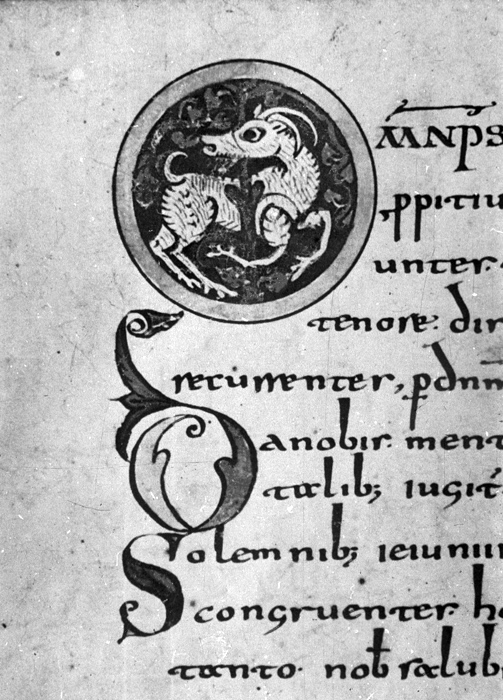 OMNPS
ppitiu
unter.
tenore. dir
recurrenter, p dnm
Da nobis ment
talib; iugit
Solemnib; ieiunii
congruenter h
tanto nob salub